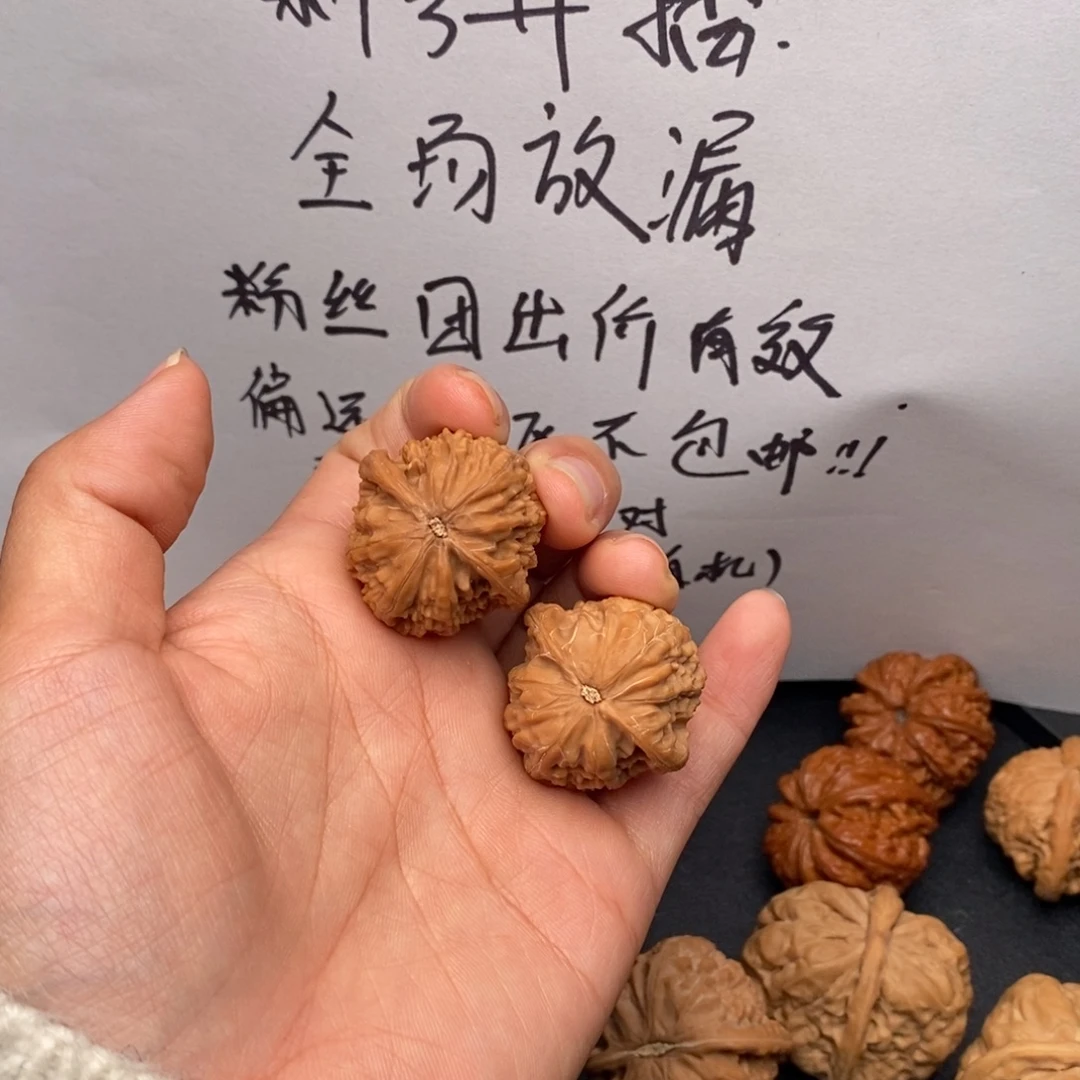 新号开播
全场放漏
粉丝团出价有效
偏远 不包邮!!!
对
机)